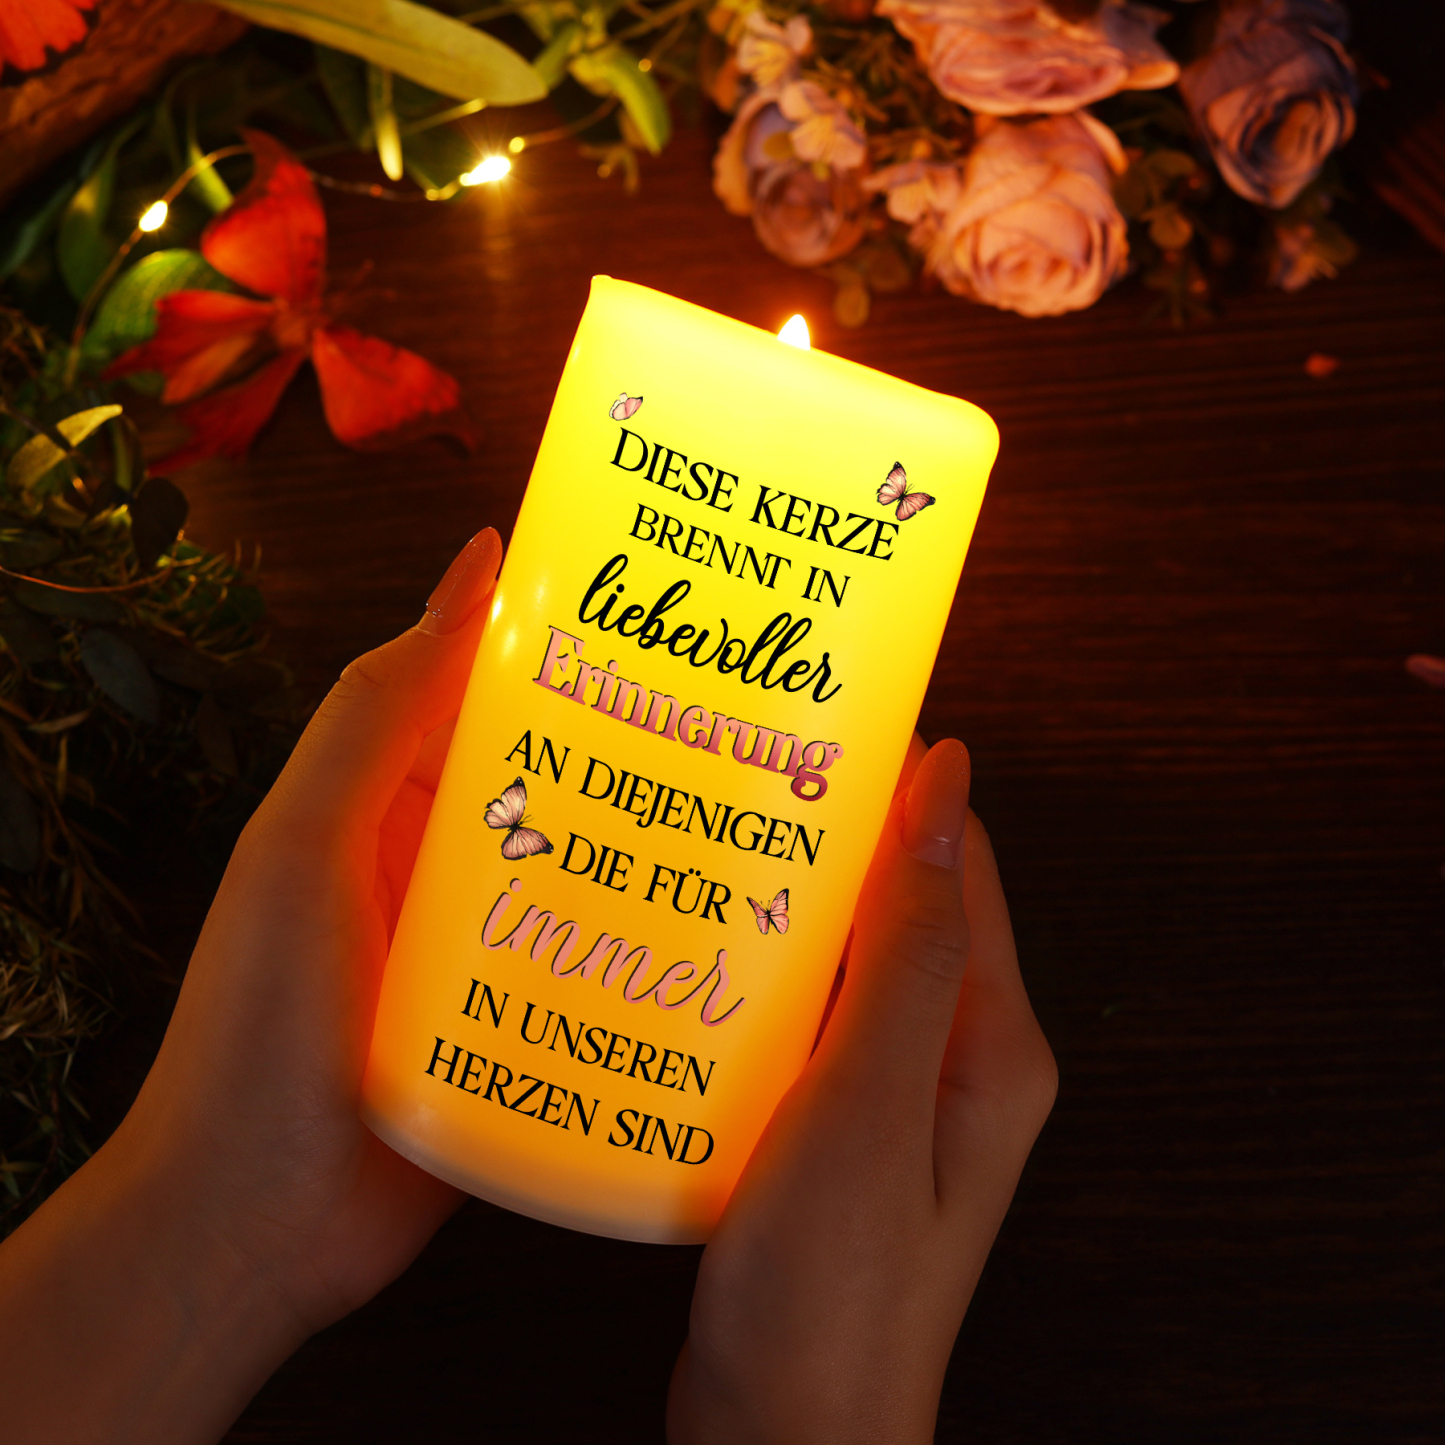 DIESE KERZE
BRENNT IN
liebevoller
Erinnerung
AN DIEJENIGEN
DIE FÜR
immer
IN UNSEREN
HERZEN SIND